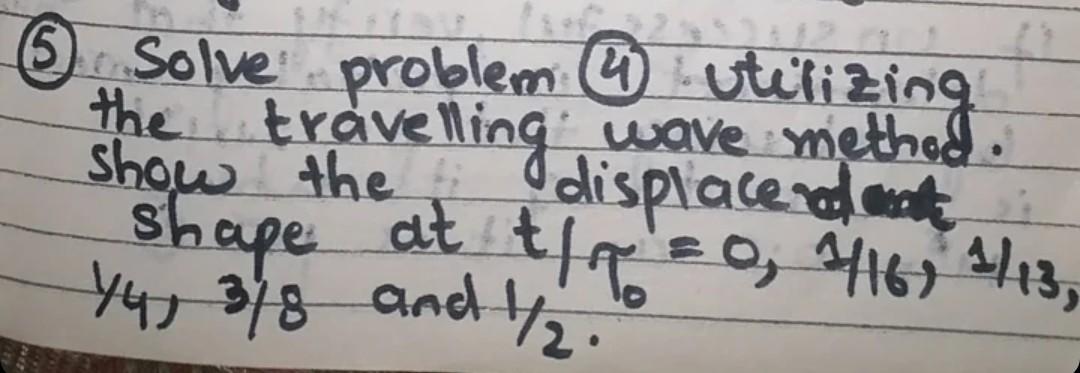 ⑤ Solve problem ④ utilizing
the travelling wave method.
show the displaced
shape at t/τ₀ = 0, 1/16, 1/13,
1/4, 3/8 and 1/2.